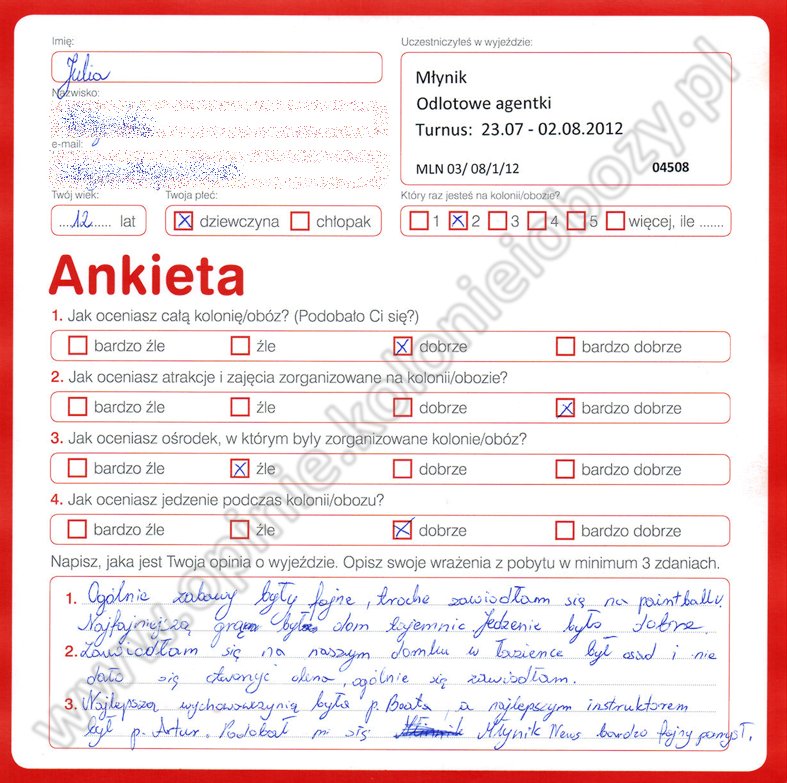 Imię:
Julia
Uczestniczyłeś w wyjeździe:
Młynik
Odlotowe agentki
Turnus: 23.07 - 02.08.2012
MLN 03/ 08/1/12 04508
Nazwisko:
e-mail:
Twój wiek:
....12...... lat
Twoja płeć:
dziewczyna chłopak
Który raz jesteś na kolonii/obozie?
1 2 3 4 5 więcej, ile .......
Ankieta
1. Jak oceniasz całą kolonię/obóz? (Podobało Ci się?)
bardzo źle źle dobrze bardzo dobrze
2. Jak oceniasz atrakcje i zajęcia zorganizowane na kolonii/obozie?
bardzo źle źle dobrze bardzo dobrze
3. Jak oceniasz ośrodek, w którym były zorganizowane kolonie/obóz?
bardzo źle źle dobrze bardzo dobrze
4. Jak oceniasz jedzenie podczas kolonii/obozu?
bardzo źle źle dobrze bardzo dobrze
Napisz, jaka jest Twoja opinia o wyjeździe. Opisz swoje wrażenia z pobytu w minimum 3 zdaniach.
1. Ogólnie zabawy były fajne, troche zawiodłam się na paintballu.
Najfajniejszą grą był dom tajemnic Jedzenie było dobre.
2. Zawiodłam się na naszym domku w łazience był osad i nie
dało się otworzyć okna, ogólnie się zawiodłam.
3. Najlepszą wychowawczynią była p. Beata, a najlepszym instruktorem
był p. Artur. Podobał mi się Młynik News bardzo fajny pomysł.
www.opinie.kolonieiobozy.pl